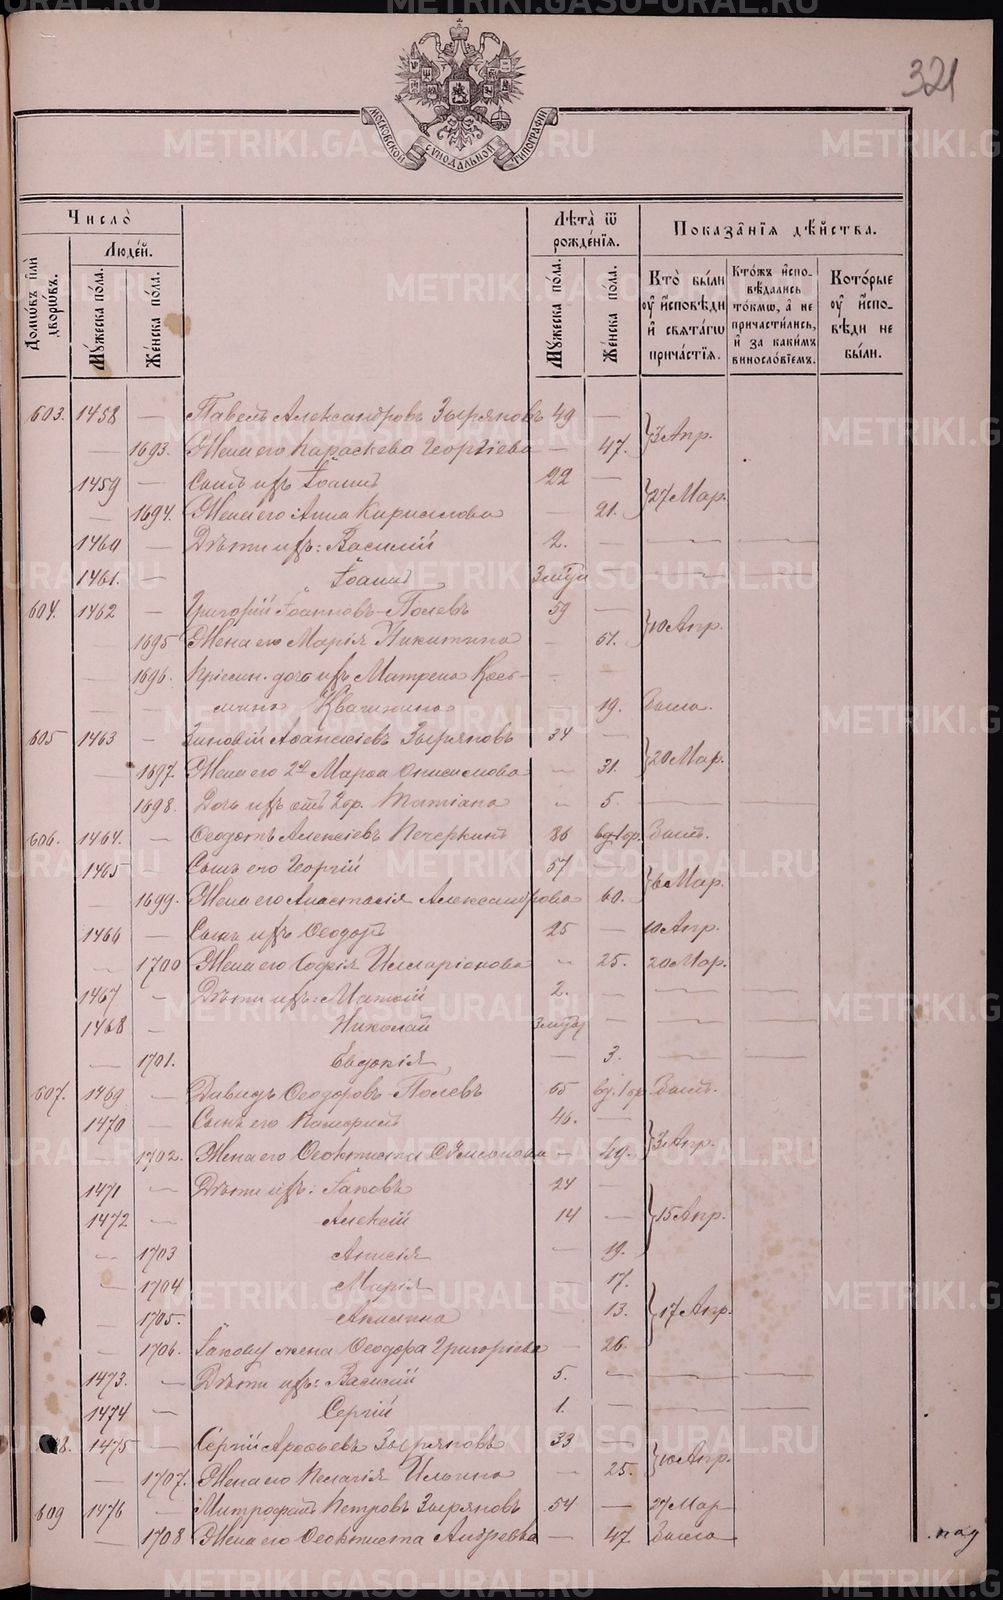 321
МОСКОВСКОЙ СѴНОДАЛЬНОЙ ТИПОГРАФІИ
Число̀
Домѡ́въ и҆лѝ дворѡ́въ.
Люде́й.
Мꙋ́жеска по́ла.
Же́нска по́ла.
Лѣ́та ѿ рожде́нїѧ.
Мꙋ́жеска по́ла.
Же́нска по́ла.
Показа̑нїѧ дѣ́йства.
Кто̀ бы́ли ᲂу҆ и҆сповѣ́ди и҆ свѧта́гѡ прича́стїѧ.
Кто́жъ и҆спо-вѣ́дались то́кмѡ, а҆ не причасти́лись, и҆ за каки́мъ виносло́вїемъ.
Кото́рые ᲂу҆ и҆спо-вѣ́ди не бы́ли.
603. 1458 — Павелъ Александровъ Зыряновъ 49 — } 3 Апр.
— 1693. Жена его Параскева Георгіева — 47.
1459 — Сынъ ихъ Іоаннъ 22 — } 27 Мар.
— 1694. Жена его Анна Кириллова — 21.
1460 — Дѣти ихъ: Василій 2. — — —
1461. — Іоаннъ — — —
604. 1462 — Григорій Іоанновъ Полевъ 59 — } 10 Апр.
— 1695 Жена его Марія Никитина — 61.
— 1696. дочь ихъ Матрена Кось-
мина 19. Была.
605 1463 — Зиновій Аѳанасіевъ Зыряновъ 34 — } 20 Мар.
— 1697. Жена его 2я Марѳа Онисимова — 31.
— 1698. Дочь ихъ отъ 2 бр. Татіана — 5. — —
606. 1464. — Ѳеодотъ Алексіевъ Печеркинъ 86 вд. 1 бр. Былъ.
1465 — Сынъ его Георгій 57 — } 6 Мар.
— 1699. Жена его Анастасія Александрова 60.
1466 — Сынъ ихъ Ѳеодоръ 25 — 10 Апр.
— 1700 Жена его Софія Илларіонова — 25. 20 Мар.
1467 — Дѣти ихъ: Матѳій 2. — — —
1468 — Николай — — —
— 1701. Евдокія — 3. — —
607. 1469 — Давидъ Ѳеодоровъ Полевъ 65 вд. 1 бр. Былъ.
1470 — Сынъ его 46. — } 3 Апр.
— 1702. Жена его Ѳеоктиста Сѵмеонова — 49.
1471 — Дѣти ихъ: Іаковъ 24 — } 15 Апр.
1472 — Алексій 14 —
— 1703 Анисія — 19.
— 1704 Марія — 17. } 17 Апр.
— 1705. Акилина 13.
— 1706. Іакову жена Ѳеодора Григоріева — 26.
1473. — Дѣти ихъ: Василій 5. — — —
1474 — Сергій 1. — — —
608. 1475 — Сергій Арефьевъ Зыряновъ 33 — } 10 Апр.
— 1707. Жена его Пелагія Ильина — 25.
609 1476 — Митрофанъ Петровъ Зыряновъ 54 — 27 Мар
— 1708 Жена его Ѳеоктиста Андреева — 47. Была
METRIKI.GASO-URAL.RU